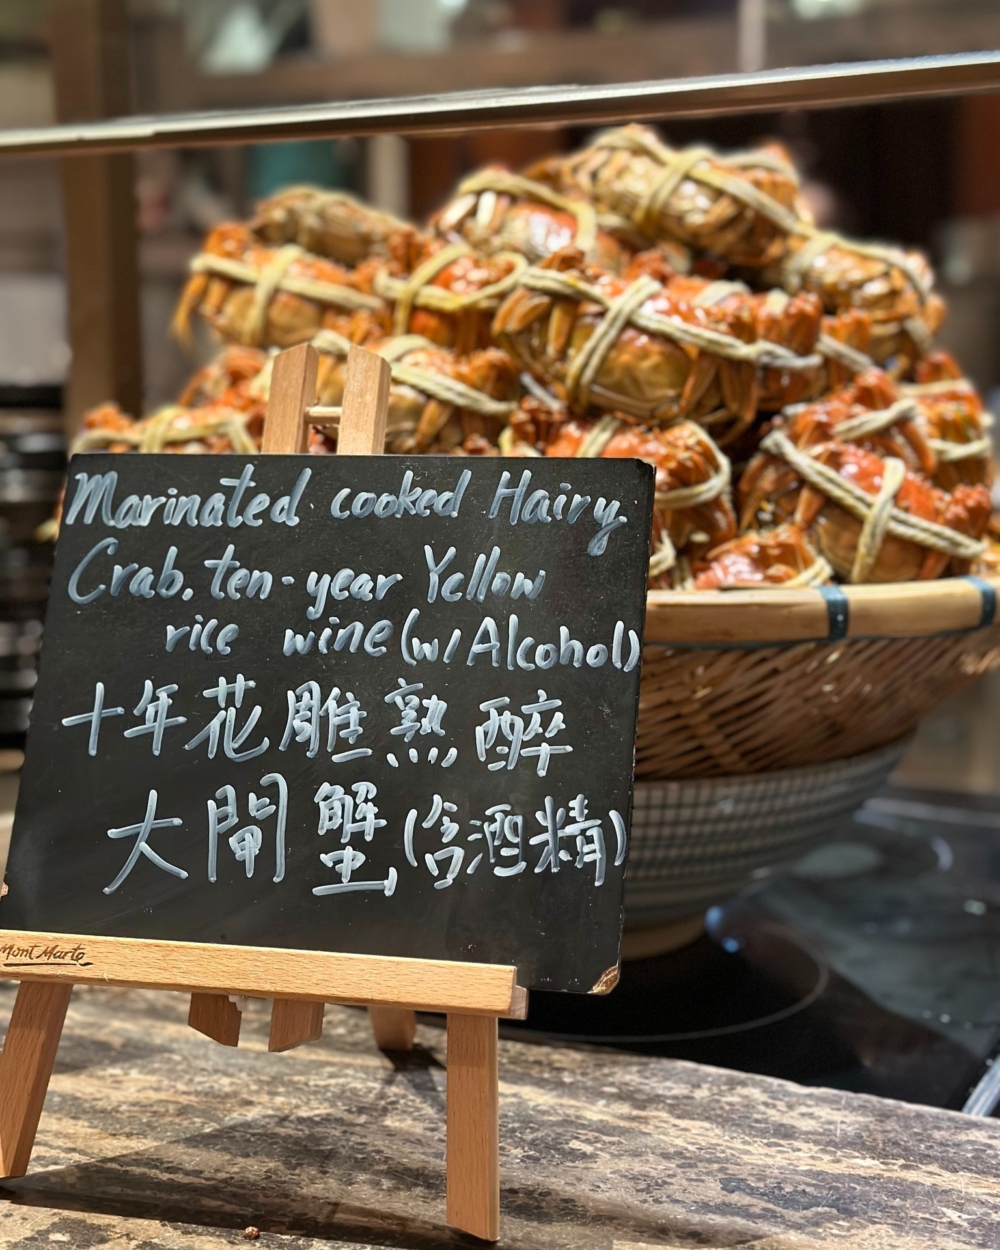 Marinated cooked Hairy
Crab. ten-year Yellow
rice wine (w/ Alcohol)
十年花雕熟醉
大閘蟹(含酒精)
Mont Marte